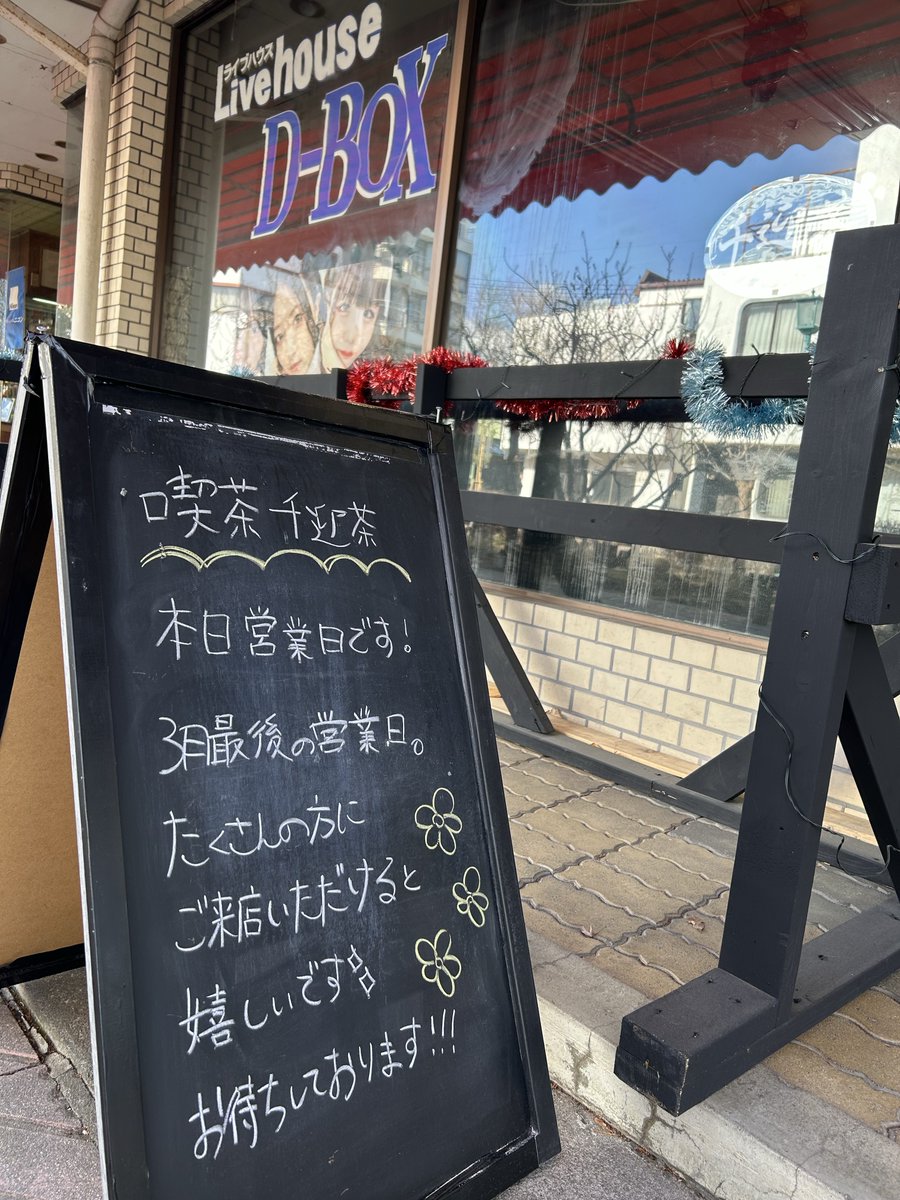 ライブハウス
Livehouse
D-BOX
喫茶 千迎茶
本日営業日です!
3月最後の営業日。
たくさんの方に
ご来店いただけると
嬉しいです
お待ちしております!!!